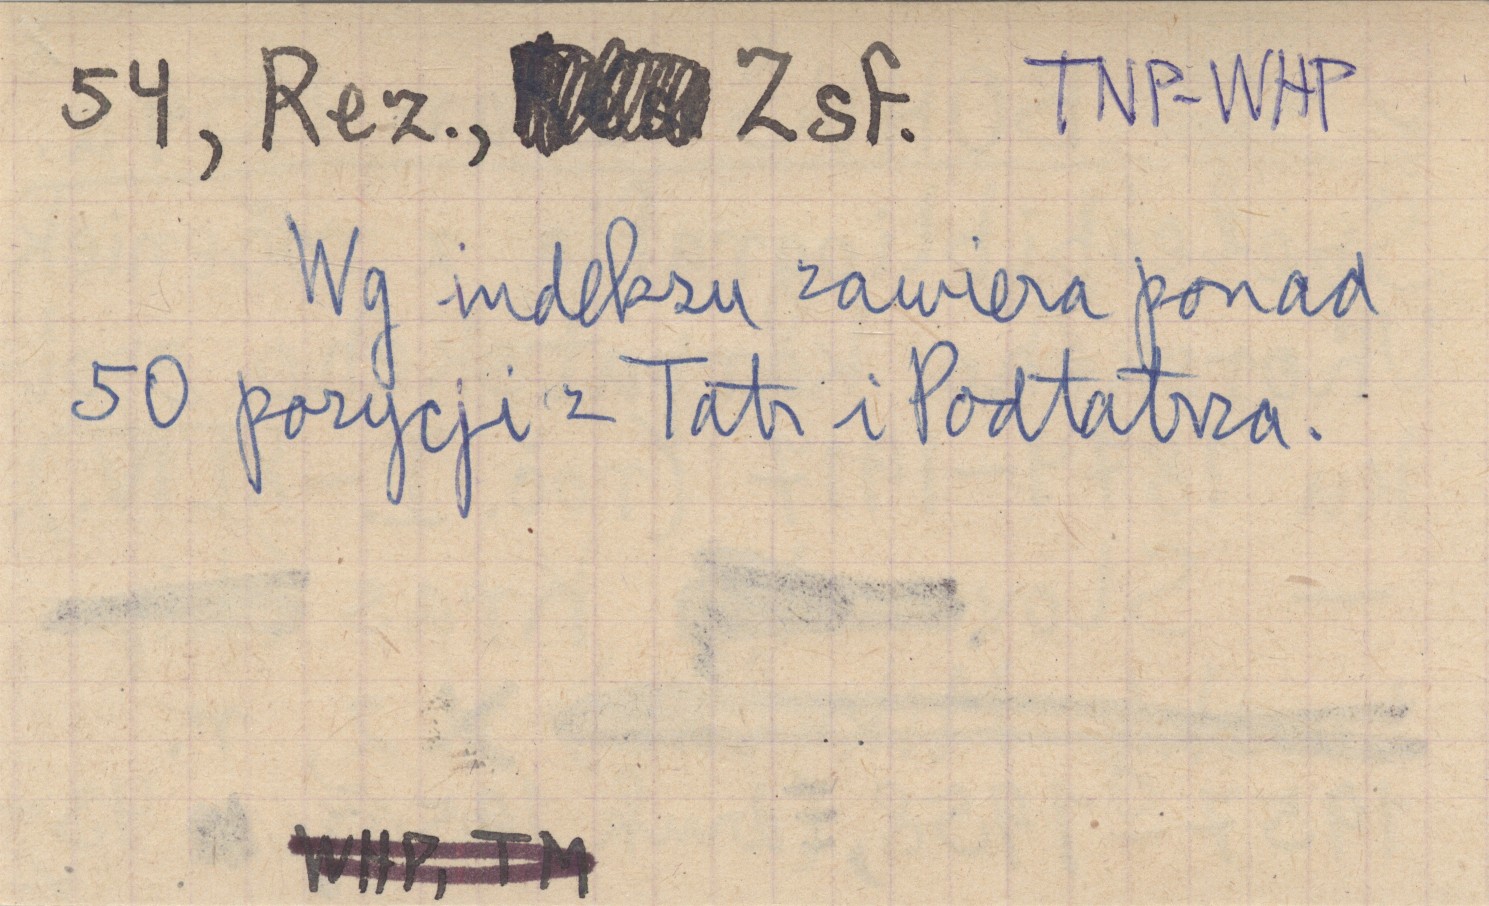 54, Rez., Zsf. TNP-WHP
Wg indeksu zawiera ponad
50 pozycji z Tatr i Podtatrza.
WHP, TM